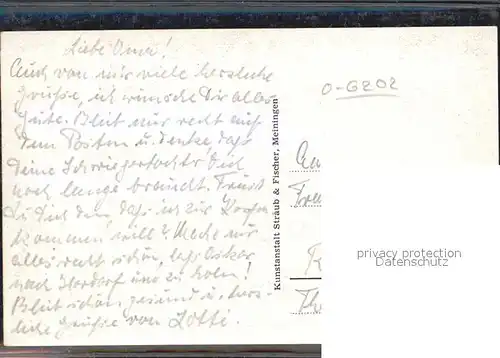 Liebe Oma!
Auch von mir viele herzliche
Grüße, ich wünsche Dir alles
Gute. Bleib nur recht auf
dem Posten u. denke, daß
Deine Schwiegertochter Dich
noch lange braucht.
Du Dich denn, daß ich zur
kommen will? Mache nur
alles recht schön,
nach und zu holen!
Bleib schön gesund u. herz-
liche Grüße von Lotti.
O-6202
Kunstanstalt Straub & Fischer, Meiningen
privacy protection
Datenschutz